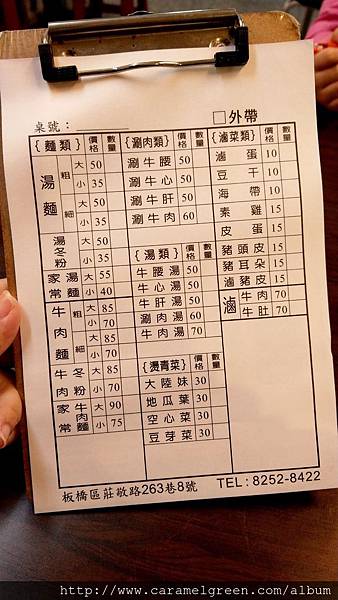 桌號：
□外帶
{麵類} 價格 數量
湯麵 粗 大 50
小 35
細 大 50
小 35
湯冬粉 大 50
小 35
家常湯麵 大 55
小 40
牛肉麵 粗 大 85
小 70
細 大 85
小 70
牛肉冬粉 大 85
小 70
家常牛肉麵 大 90
小 75
{涮肉類} 價格 數量
涮牛腰 50
涮牛心 50
涮牛肝 50
涮牛肉 60
{湯類} 價格 數量
牛腰湯 50
牛心湯 50
牛肝湯 50
涮肉湯 60
牛肉湯 70
{燙青菜} 價格 數量
大陸妹 30
地瓜葉 30
空心菜 30
豆芽菜 30
{滷菜類} 價格 數量
滷蛋 10
豆干 10
海帶 10
素雞 15
皮蛋 15
豬頭皮 15
豬耳朵 15
滷豬皮 15
滷 牛肉 70
牛肚 70
板橋區莊敬路263巷8號
TEL：8252-8422
http://www.caramelgreen.com/album